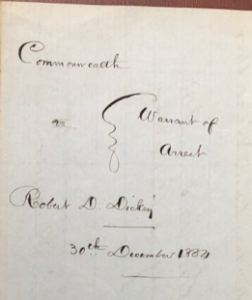 Commonwealth
vs.
Warrant of
Arrest
Robert D. Dickey
30th December 1884